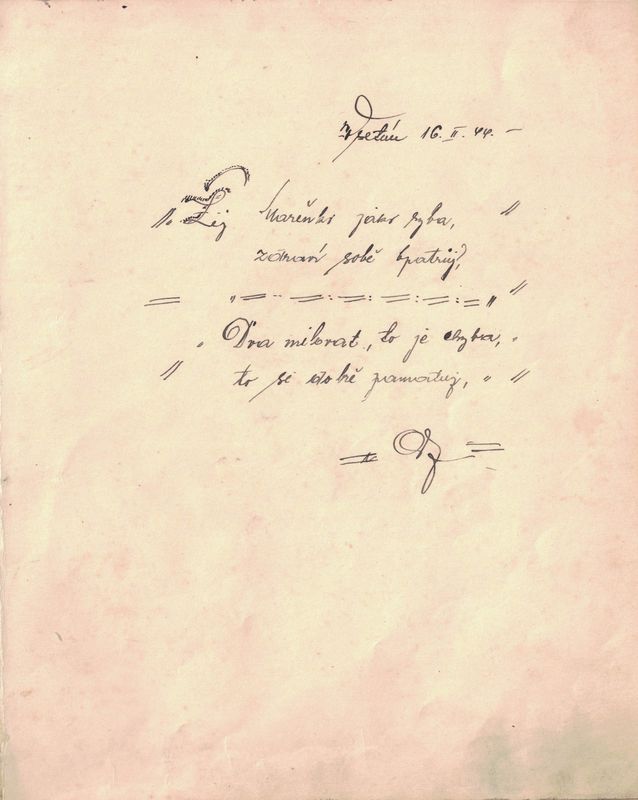 Vsetín 16. II. 44. –
„Žij Mařenko jako ryba, "
zdraví sobě opatruj,
Dva milovat, to je chyba,
to si dobře pamatuj, "